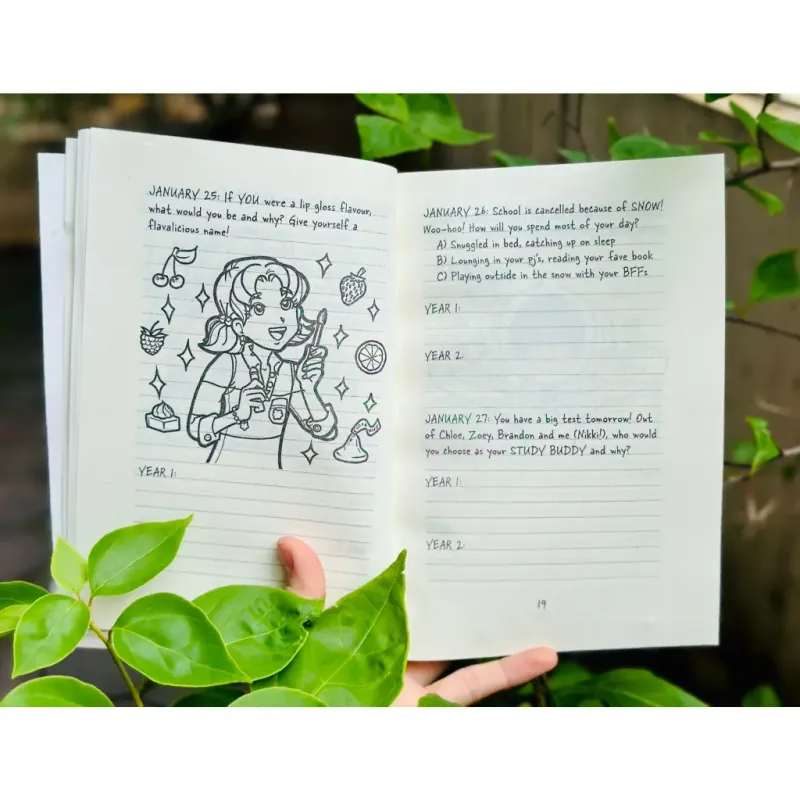 JANUARY 25: If YOU were a lip gloss flavour,
what would you be and why? Give yourself a
flavalicious name!
YEAR 1:
JANUARY 26: School is cancelled because of SNOW!
Woo-hoo! How will you spend most of your day?
A) Snuggled in bed, catching up on sleep
B) Lounging in your pj's, reading your fave book
C) Playing outside in the snow with your BFFs
YEAR 1:
YEAR 2:
JANUARY 27: You have a big test tomorrow! Out
of Chloe, Zoey, Brandon and me (Nikki!), who would
you choose as your STUDY BUDDY and why?
YEAR 1:
YEAR 2:
19